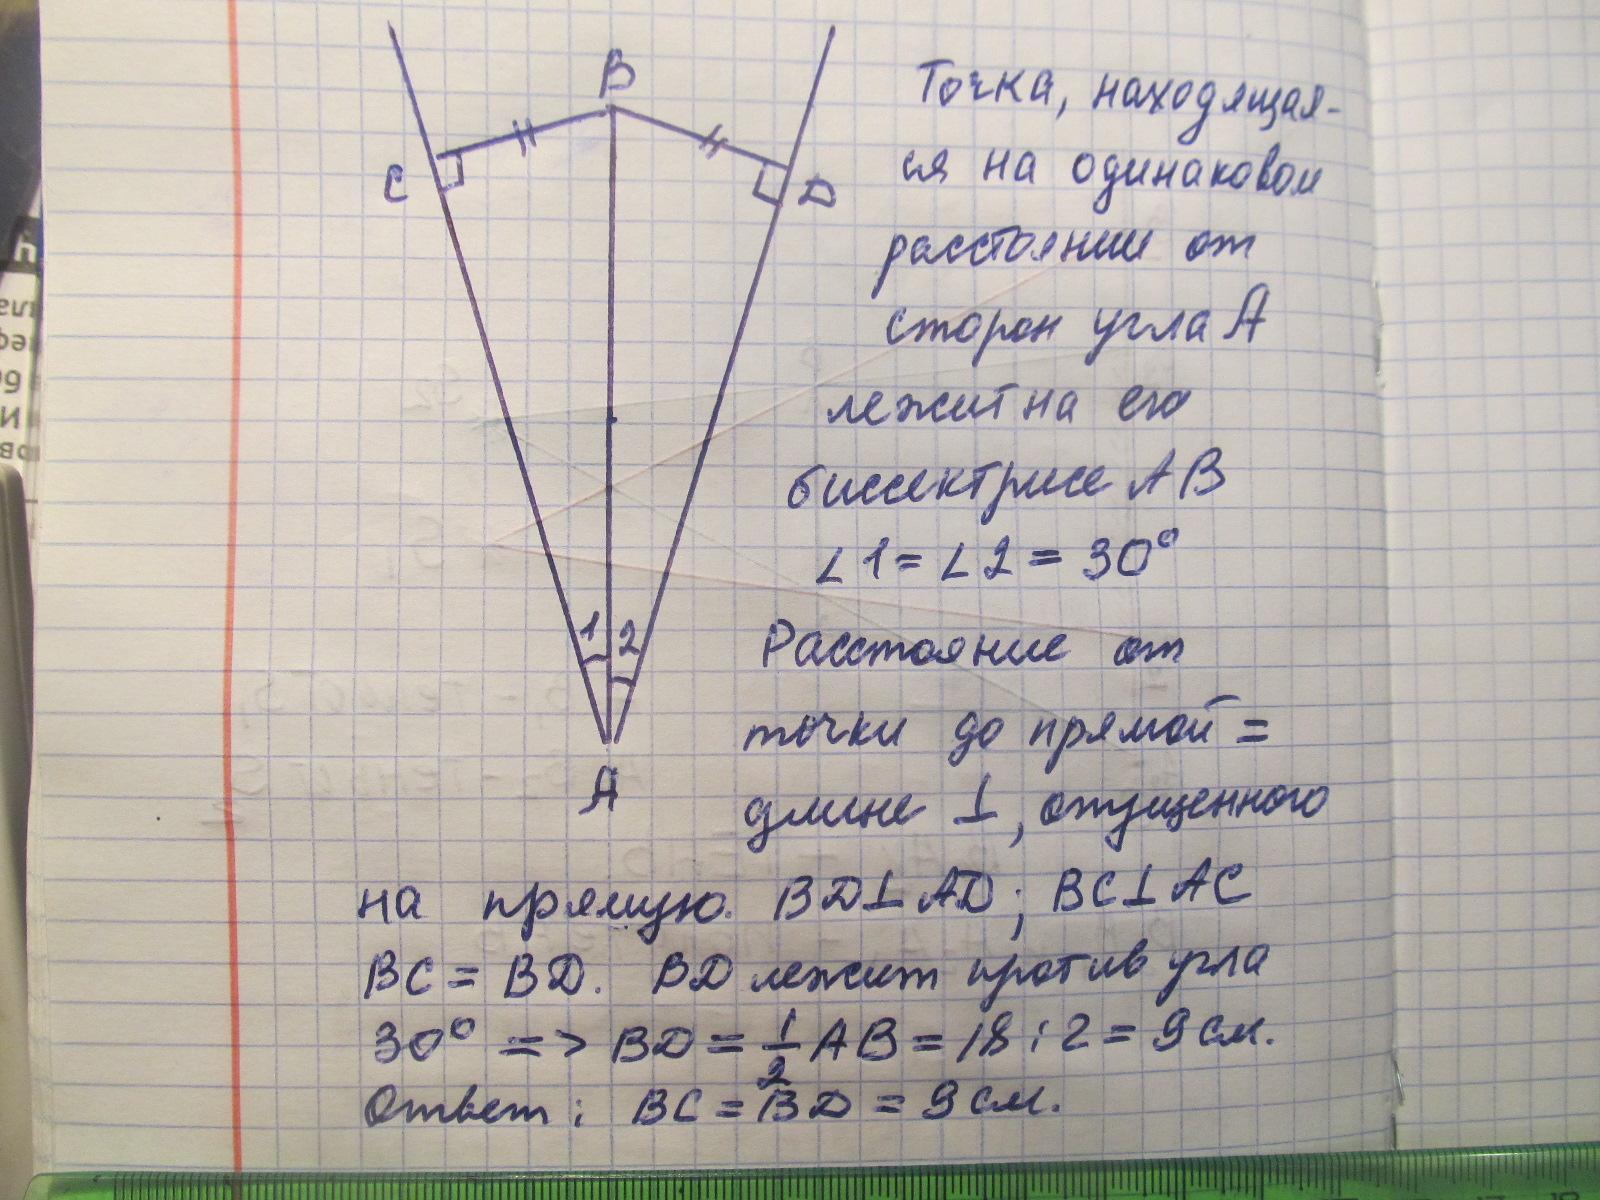 B
C
D
1
2
A
Точка, находящая-
ся на одинаковом
расстоянии от
сторон угла A
лежит на его
биссектрисе AB
∠1 = ∠2 = 30°
Расстояние от
точки до прямой =
длине ⊥, опущенного
на прямую. BD⊥AD; BC⊥AC
BC = BD. BD лежит против угла
30° => BD = 1/2 AB = 18 : 2 = 9 см.
Ответ: BC = BD = 9 см.